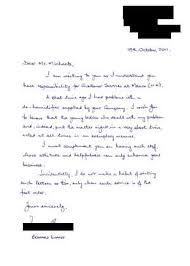 19th October, 2011.
Dear Mr. Michaels,
I am writing to you as I understand you
have responsibility for Customer Services at Meaco (U.K).
A short time ago I had problems with a
de-humidifier supplied by your Company. I wish for you
to know that the young ladies who dealt with my problem
and, indeed, put the matter right in a very short time,
acted at all times in an exemplary manner.
I must compliment you on having such staff,
whose attitude and helpfulness can only enhance your
business.
Incidentally, I do not make a habit of writing
such letters as this, only when such service is of the
first order.
Yours sincerely,